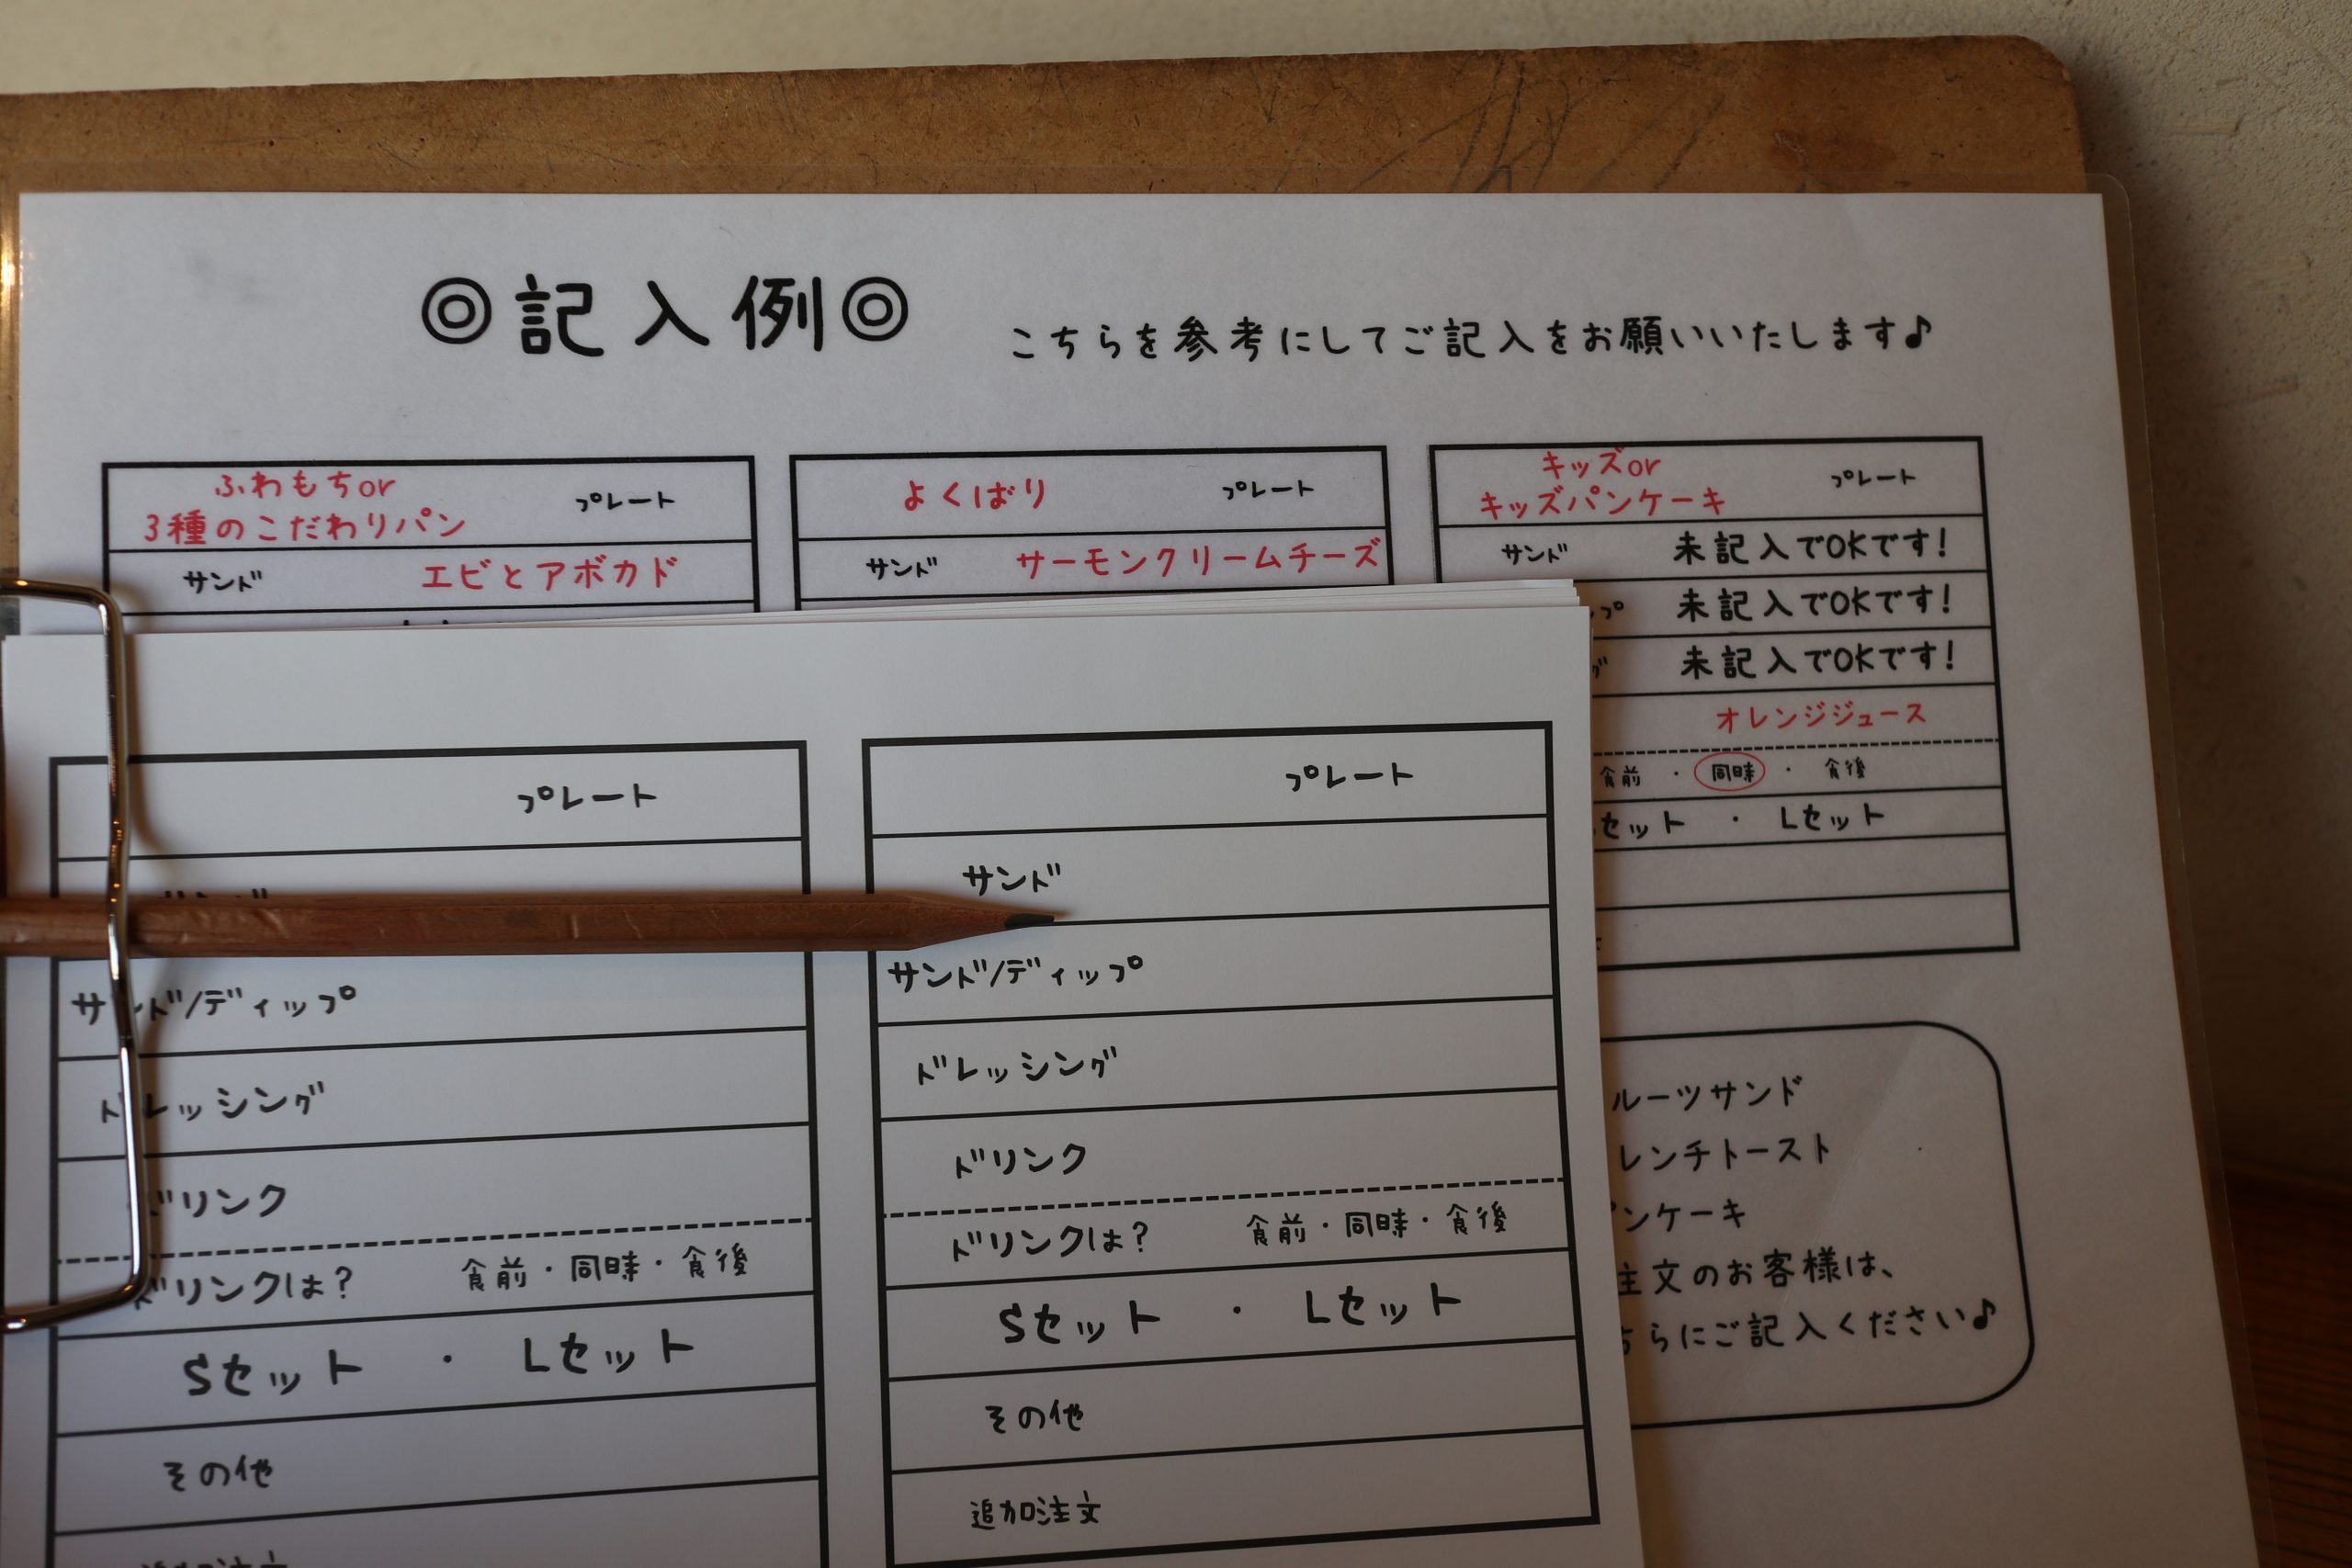 ◎記入例◎ こちらを参考にしてご記入をお願いいたします♪
ふわもちor
3種のこだわりパン プレート
サンド エビとアボカド
よくばり プレート
サンド サーモンクリームチーズ
キッズor
キッズパンケーキ プレート
サンド 未記入でOKです!
プ 未記入でOKです!
グ 未記入でOKです!
オレンジジュース
食前 ・ 同時 ・ 食後
セット ・ Lセット
ルーツサンド
レンチトースト
ンケーキ
注文のお客様は、
ちらにご記入ください♪
プレート
サンド/ディップ
ドレッシング
ドリンク
ドリンクは? 食前・同時・食後
Sセット ・ Lセット
その他
追加注文
プレート
サンド
サンド/ディップ
ドレッシング
ドリンク
ドリンクは? 食前・同時・食後
Sセット ・ Lセット
その他
追加注文